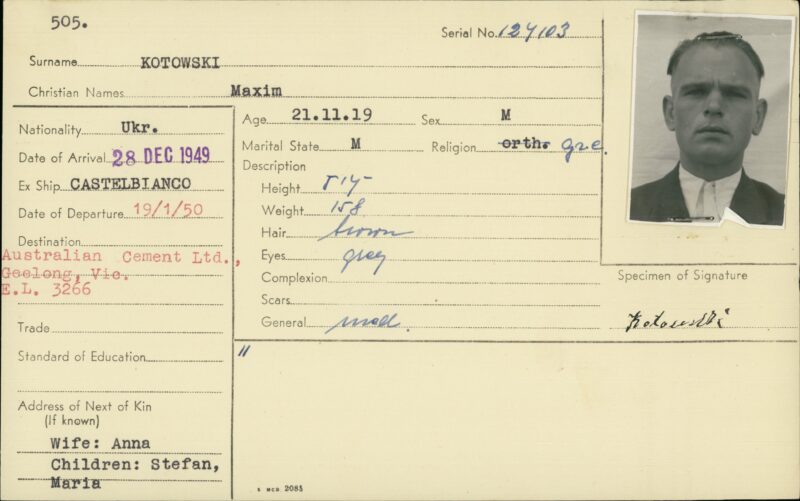 505.
Serial No. 124103
Surname KOTOWSKI
Christian Names Maxim
Nationality Ukr.
Date of Arrival 28 DEC 1949
Ex Ship CASTELBIANCO
Date of Departure 19/1/50
Destination
Australian Cement Ltd.,
Geelong, Vic.
E.L. 3266
Trade
Standard of Education
Address of Next of Kin
(If known)
Wife: Anna
Children: Stefan,
Maria
Age 21.11.19 Sex M
Marital State M Religion orth.
Description
Height 5'4"
Weight 158
Hair brown
Eyes grey
Complexion
Scars
General med.
"
Specimen of Signature
Kotowski